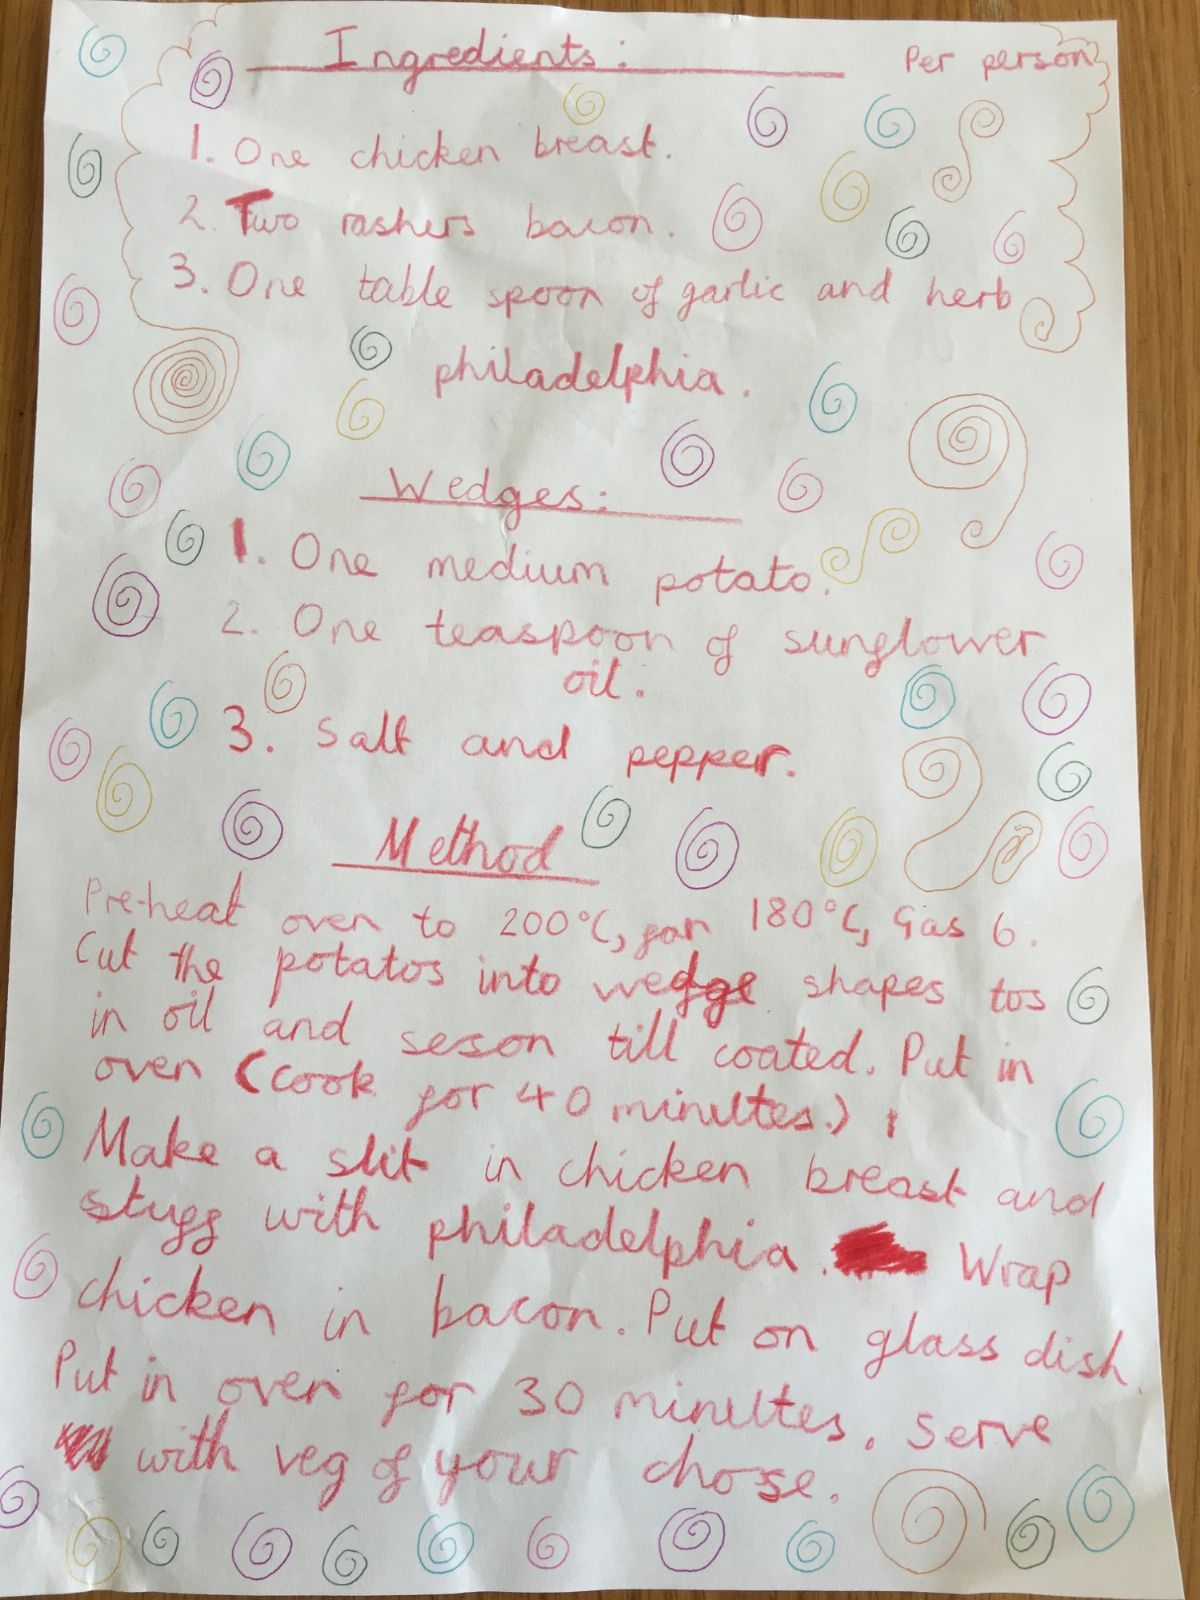 Ingredients: Per person
1. One chicken breast.
2. Two rashers bacon.
3. One table spoon of garlic and herb
philadelphia.
Wedges:
1. One medium potato.
2. One teaspoon of sunflower
oil.
3. Salt and pepper.
Method
Pre-heat oven to 200°C, fan 180°C, Gas 6.
Cut the potatos into wedge shapes tos
in oil and seson till coated. Put in
oven (cook for 40 minutes.)
Make a slit in chicken breast and
stuff with philadelphia. Wrap
chicken in bacon. Put on glass dish.
Put in oven for 30 minutes. Serve
with veg of your chose.